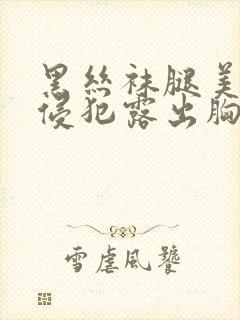 黑丝袜腿美
侵犯露出胸
雪虐风饕